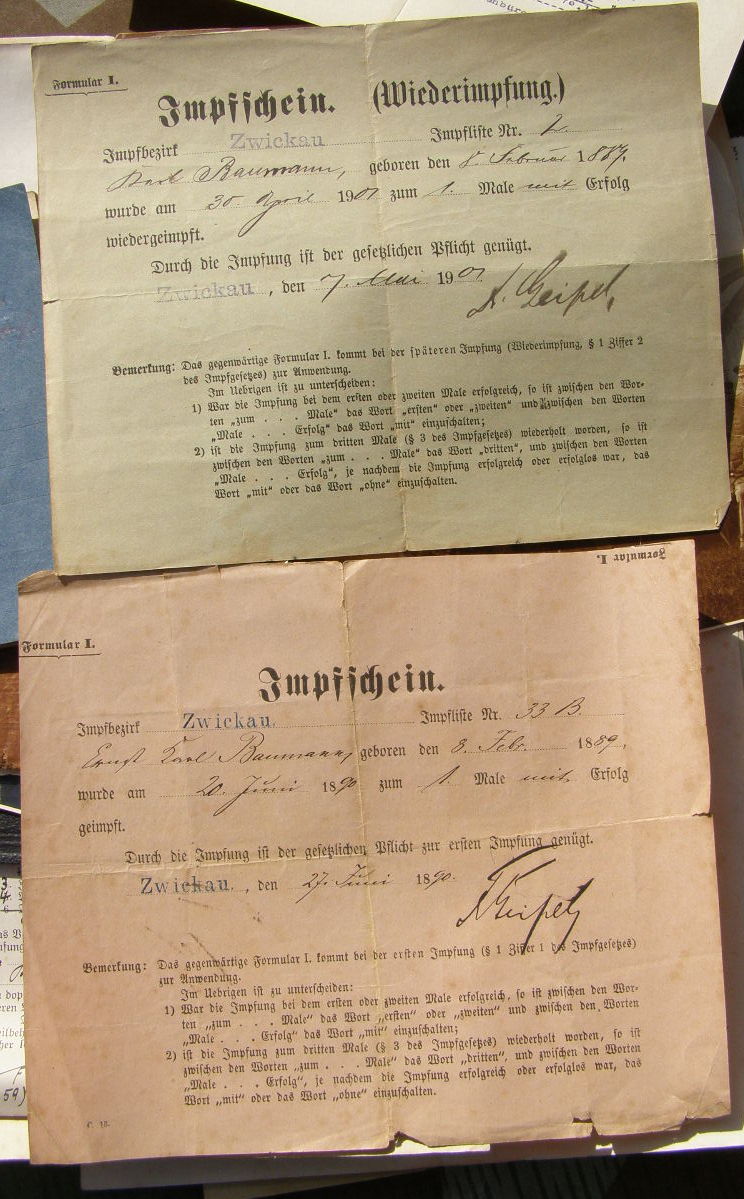 Formular I.
Impfschein. (Wiederimpfung.)
Impfbezirk Zwickau Impfliste Nr. 2
Karl Baumann, geboren den 8. Februar 1889.
wurde am 30 April 1901 zum 1. Male mit Erfolg
wiedergeimpft.
Durch die Impfung ist der gesetzlichen Pflicht genügt.
Zwickau, den 7. Mai 1901
A. Geipel,
Bemerkung: Das gegenwärtige Formular I. kommt bei der späteren Impfung (Wiederimpfung, § 1 Ziffer 2
des Impfgesetzes) zur Anwendung.
Im Uebrigen ist zu unterscheiden:
1) War die Impfung bei dem ersten oder zweiten Male erfolgreich, so ist zwischen den Wor-
ten „zum . . . Male“ das Wort „ersten“ oder „zweiten“ und zwischen den Worten
„Male . . . Erfolg“ das Wort „mit“ einzuschalten;
2) ist die Impfung zum dritten Male (§ 3 des Impfgesetzes) wiederholt worden, so ist
zwischen den Worten „zum . . . Male“ das Wort „dritten“, und zwischen den Worten
„Male . . . Erfolg“, je nachdem die Impfung erfolgreich oder erfolglos war, das
Wort „mit“ oder das Wort „ohne“ einzuschalten.
Formular I.
Formular I.
Impfschein.
Impfbezirk Zwickau. Impfliste Nr. 33 B.
Ernst Karl Baumann, geboren den 8. Febr. 1889.
wurde am 20. Juni 1890 zum 1. Male mit Erfolg
geimpft.
Durch die Impfung ist der gesetzlichen Pflicht zur ersten Impfung genügt.
Zwickau, den 27. Juni 1890.
A. Geipel
Bemerkung: Das gegenwärtige Formular I. kommt bei der ersten Impfung (§ 1 Ziffer 1 des Impfgesetzes)
zur Anwendung.
Im Uebrigen ist zu unterscheiden:
1) War die Impfung bei dem ersten oder zweiten Male erfolgreich, so ist zwischen den Wor-
ten „zum . . . Male“ das Wort „ersten“ oder „zweiten“ und zwischen den Worten
„Male . . . Erfolg“ das Wort „mit“ einzuschalten;
2) ist die Impfung zum dritten Male (§ 3 des Impfgesetzes) wiederholt worden, so ist
zwischen den Worten „zum . . . Male“ das Wort „dritten“, und zwischen den Worten
„Male . . . Erfolg“, je nachdem die Impfung erfolgreich oder erfolglos war, das
Wort „mit“ oder das Wort „ohne“ einzuschalten.